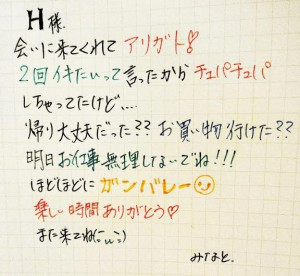 H様.
会いに来てくれて アリガト♡
2回イキたいって言ったから チュパチュパ
しちゃってたけど....
帰り大丈夫だった?? お買い物行けた??
明日お仕事無理しないでね!!!
ほどほどに ガンバレー
楽しい時間ありがとう♡
また来てね(¨ )
みなと.